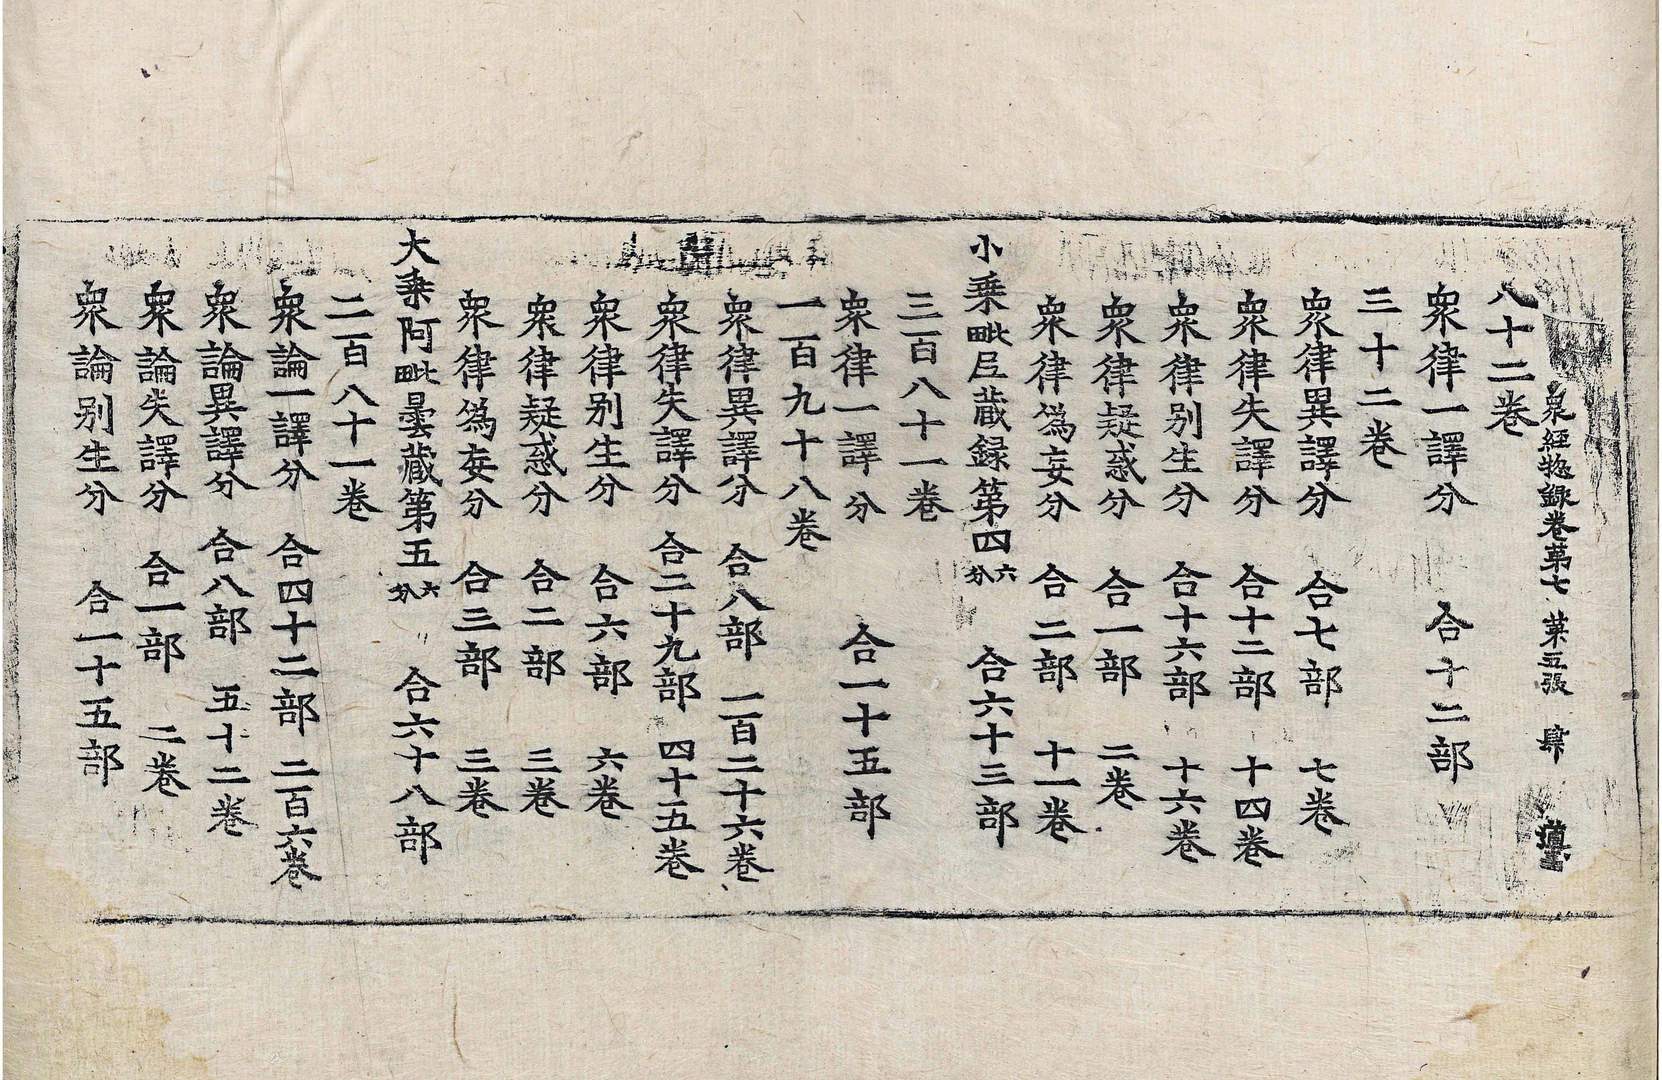 衆經惣錄卷第七 第五張 肆
八十二卷
衆律一譯分 合十二部
三十二卷
衆律異譯分 合七部 七卷
衆律失譯分 合十二部 十四卷
衆律别生分 合十六部 十六卷
衆律疑惑分 合一部 二卷
衆律僞妄分 合二部 十一卷
小乗毗尼藏録第四六分 合六十三部
三百八十一卷
衆律一譯分 合一十五部
一百九十八卷
衆律異譯分 合八部 一百二十六卷
衆律失譯分 合二十九部 四十五卷
衆律别生分 合六部 六卷
衆律疑惑分 合二部 三卷
衆律僞妄分 合三部 三卷
大乗阿毗曇藏第五六分 合六十八部
二百八十一卷
衆論一譯分 合四十二部 二百六卷
衆論異譯分 合八部 五十二卷
衆論失譯分 合一部 二卷
衆論别生分 合一十五部